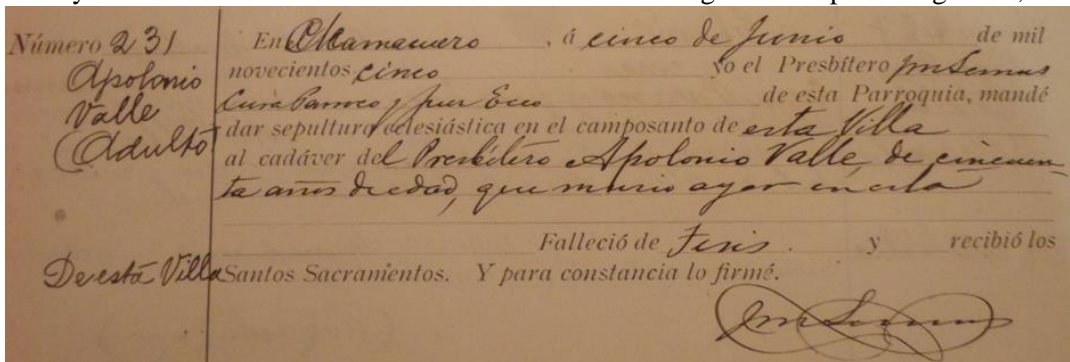 Número 231
Apolonio
Valle
(Adulto
De esta Villa
En Chamacuero, á cinco de Junio de mil
novecientos cinco yo el Presbítero
Cura Parroco y de esta Parroquia, mandé
dar sepultura eclesiástica en el camposanto de esta Villa
al cadáver del Presbitero Apolonio Valle, de cincuen-
ta años de edad, que murio ayer en esta
Falleció de Tisis. y recibió los
Santos Sacramentos. Y para constancia lo firmé.